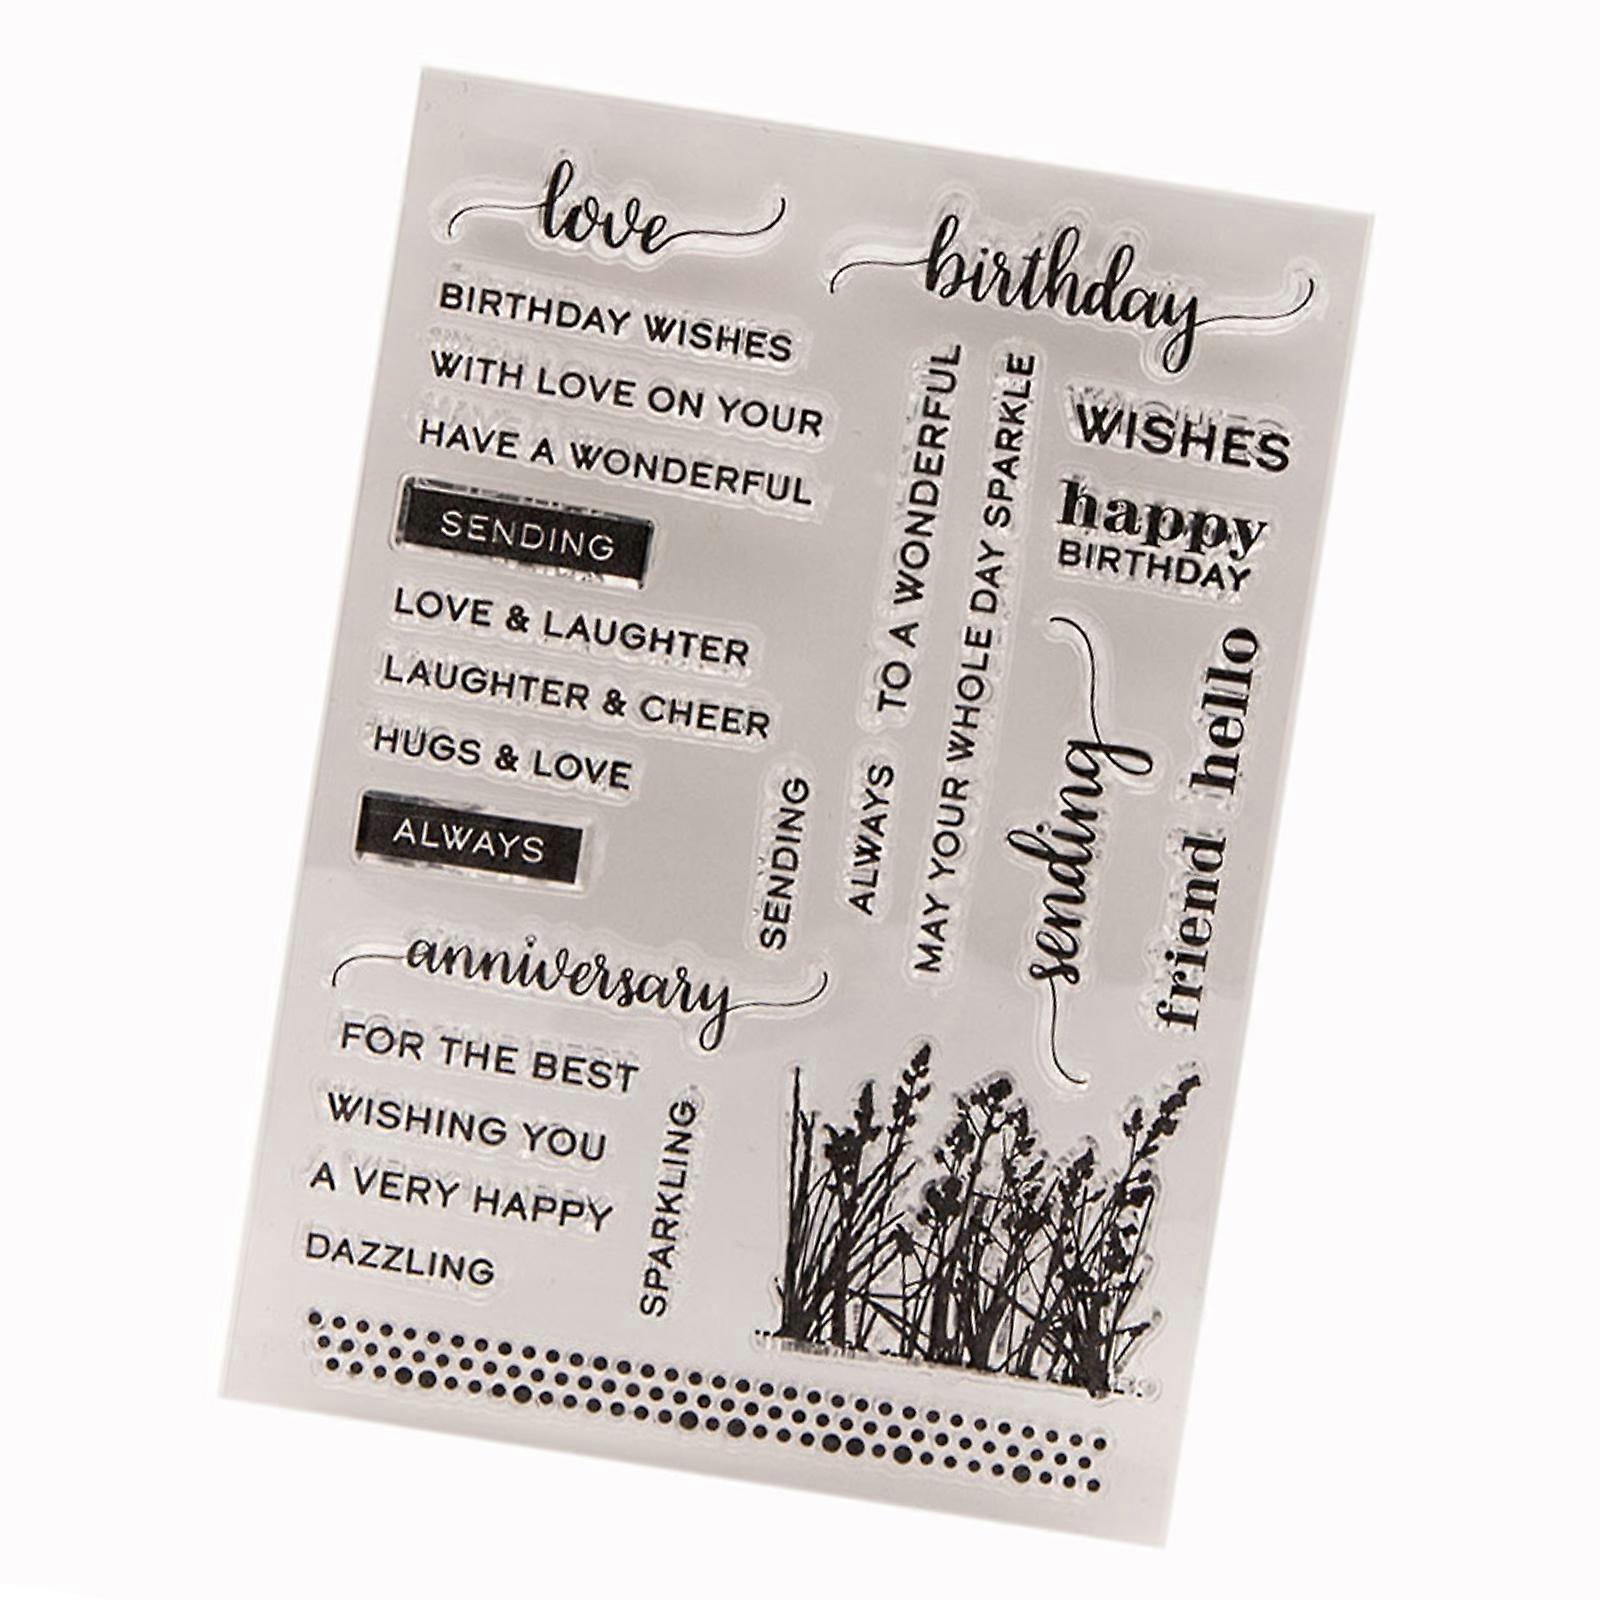 love
BIRTHDAY WISHES
WITH LOVE ON YOUR
HAVE A WONDERFUL
SENDING
LOVE & LAUGHTER
LAUGHTER & CHEER
HUGS & LOVE
ALWAYS
anniversary
FOR THE BEST
WISHING YOU
A VERY HAPPY
DAZZLING
SPARKLING
SENDING
ALWAYS
TO A WONDERFUL
MAY YOUR WHOLE DAY SPARKLE
birthday
WISHES
happy
BIRTHDAY
sending
friend
hello